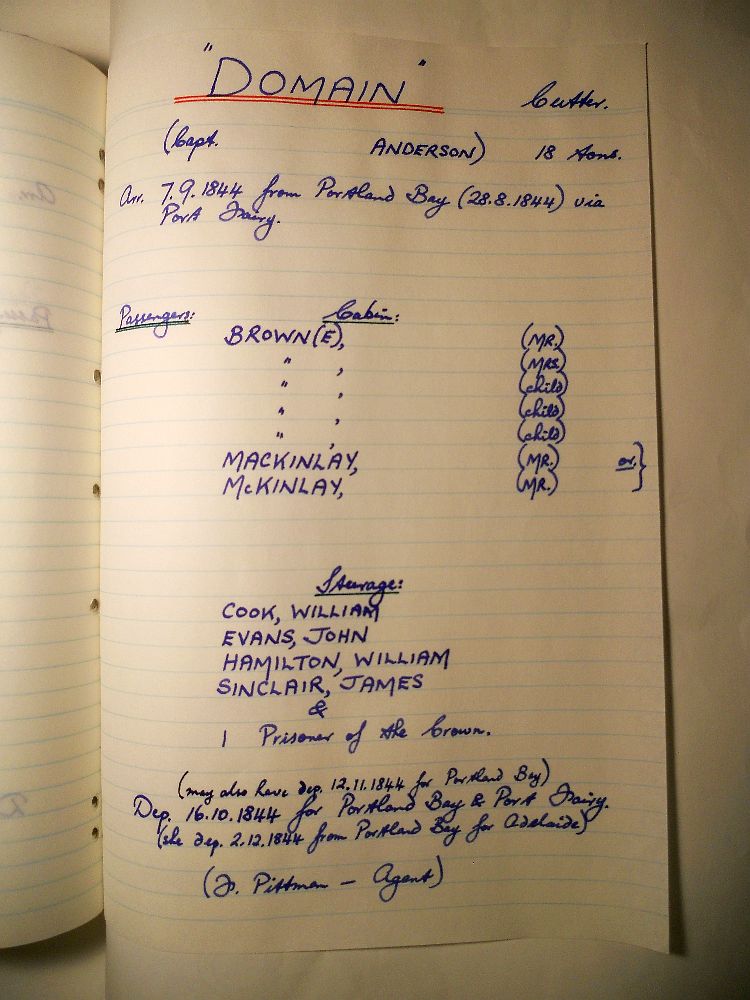 "DOMAIN" Cutter.
(Capt. ANDERSON) 18 tons.
Arr. 7.9.1844 from Portland Bay (28.8.1844) via
Port Fairy.
Passengers: Cabin:
BROWN(E), (MR.)
" , (MRS.)
" , (child)
" , (child)
" , (child)
MACKINLAY, (MR.) or }
McKINLAY, (MR.)
Steerage:
COOK, WILLIAM
EVANS, JOHN
HAMILTON, WILLIAM
SINCLAIR, JAMES
&
1 Prisoner of the Crown.
(may also have dep. 12.11.1844 for Portland Bay)
Dep. 16.10.1844 for Portland Bay & Port Fairy.
(she dep. 2.12.1844 from Portland Bay for Adelaide)
Pittman – Agent)